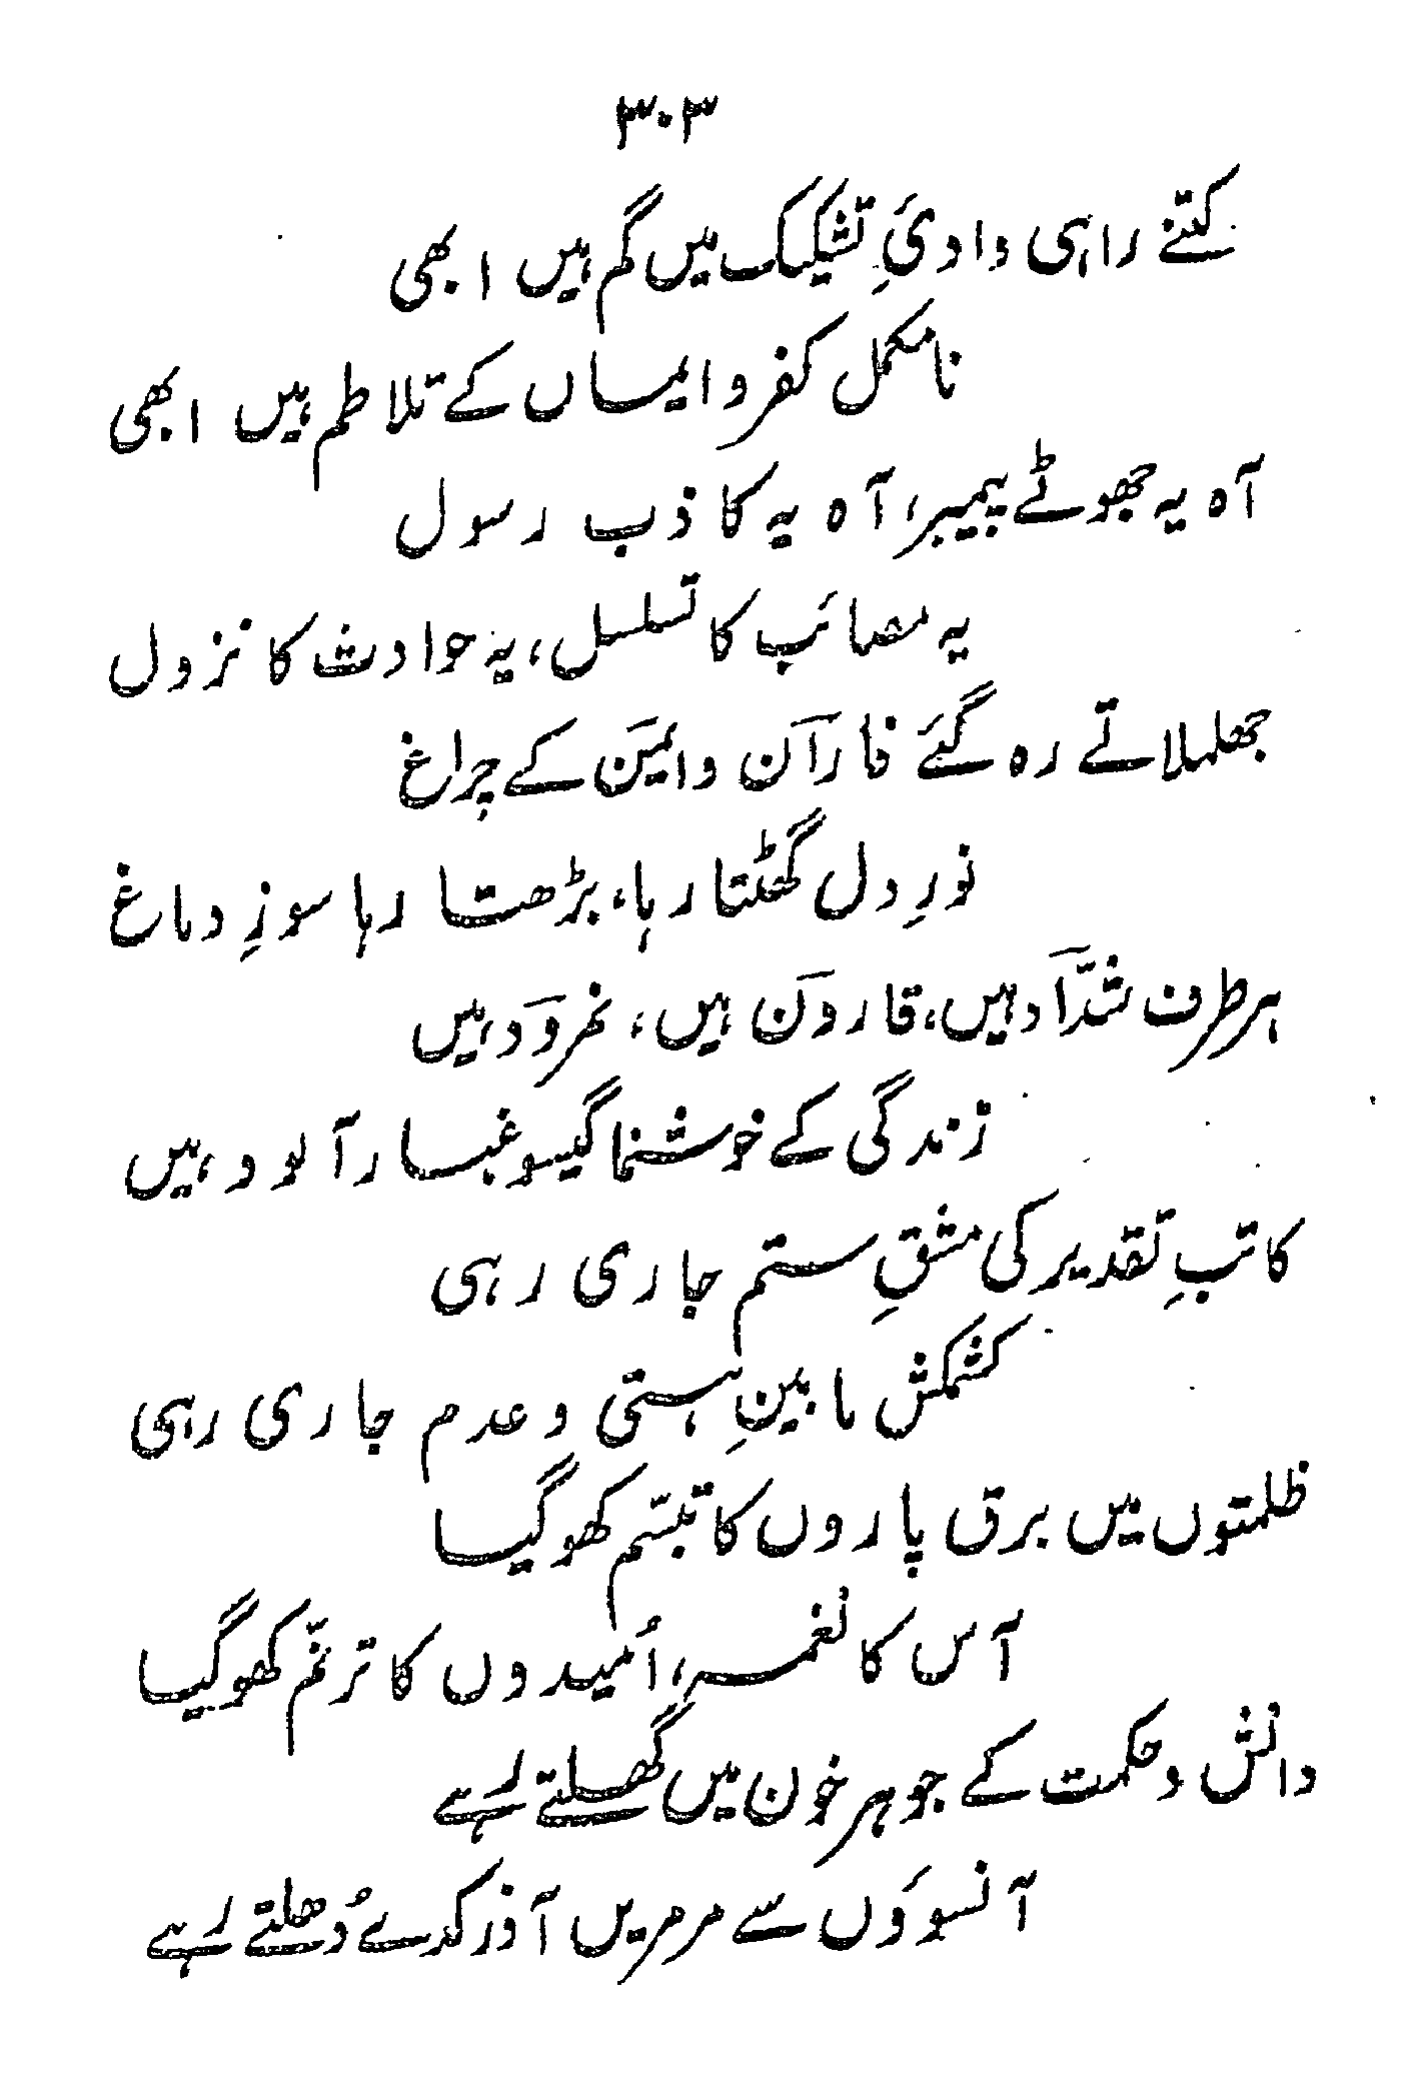 ۳۰۳
کتنے راہی وادیٔ تشکیک میں گم ہیں ابھی
نامکمل کفر و ایماں کے تلاطم ہیں ابھی
آہ یہ جھوٹے پیمبر، آہ یہ کاذب رسول
یہ مصائب کا تسلسل، یہ حوادث کا نزول
جھلملاتے رہ گئے فاران و ایمن کے چراغ
نورِ دل گھٹتا رہا، بڑھتا رہا سوزِ دماغ
ہر طرف شدّاد ہیں، قارون ہیں، نمرود ہیں
زندگی کے خوشنما گیسو غبار آلود ہیں
کاتبِ تقدیر کی مشقِ ستم جاری رہی
کشمکش مابینِ ہستی و عدم جاری رہی
ظلمتوں میں برق پاروں کا تبسّم کھو گیا
آس کا نغمہ، اُمیدوں کا ترنّم کھو گیا
دانش و حکمت کے جوہر خون میں گھلتے رہے
آنسوؤں سے مرمریں آذر کدے دُھلتے رہے